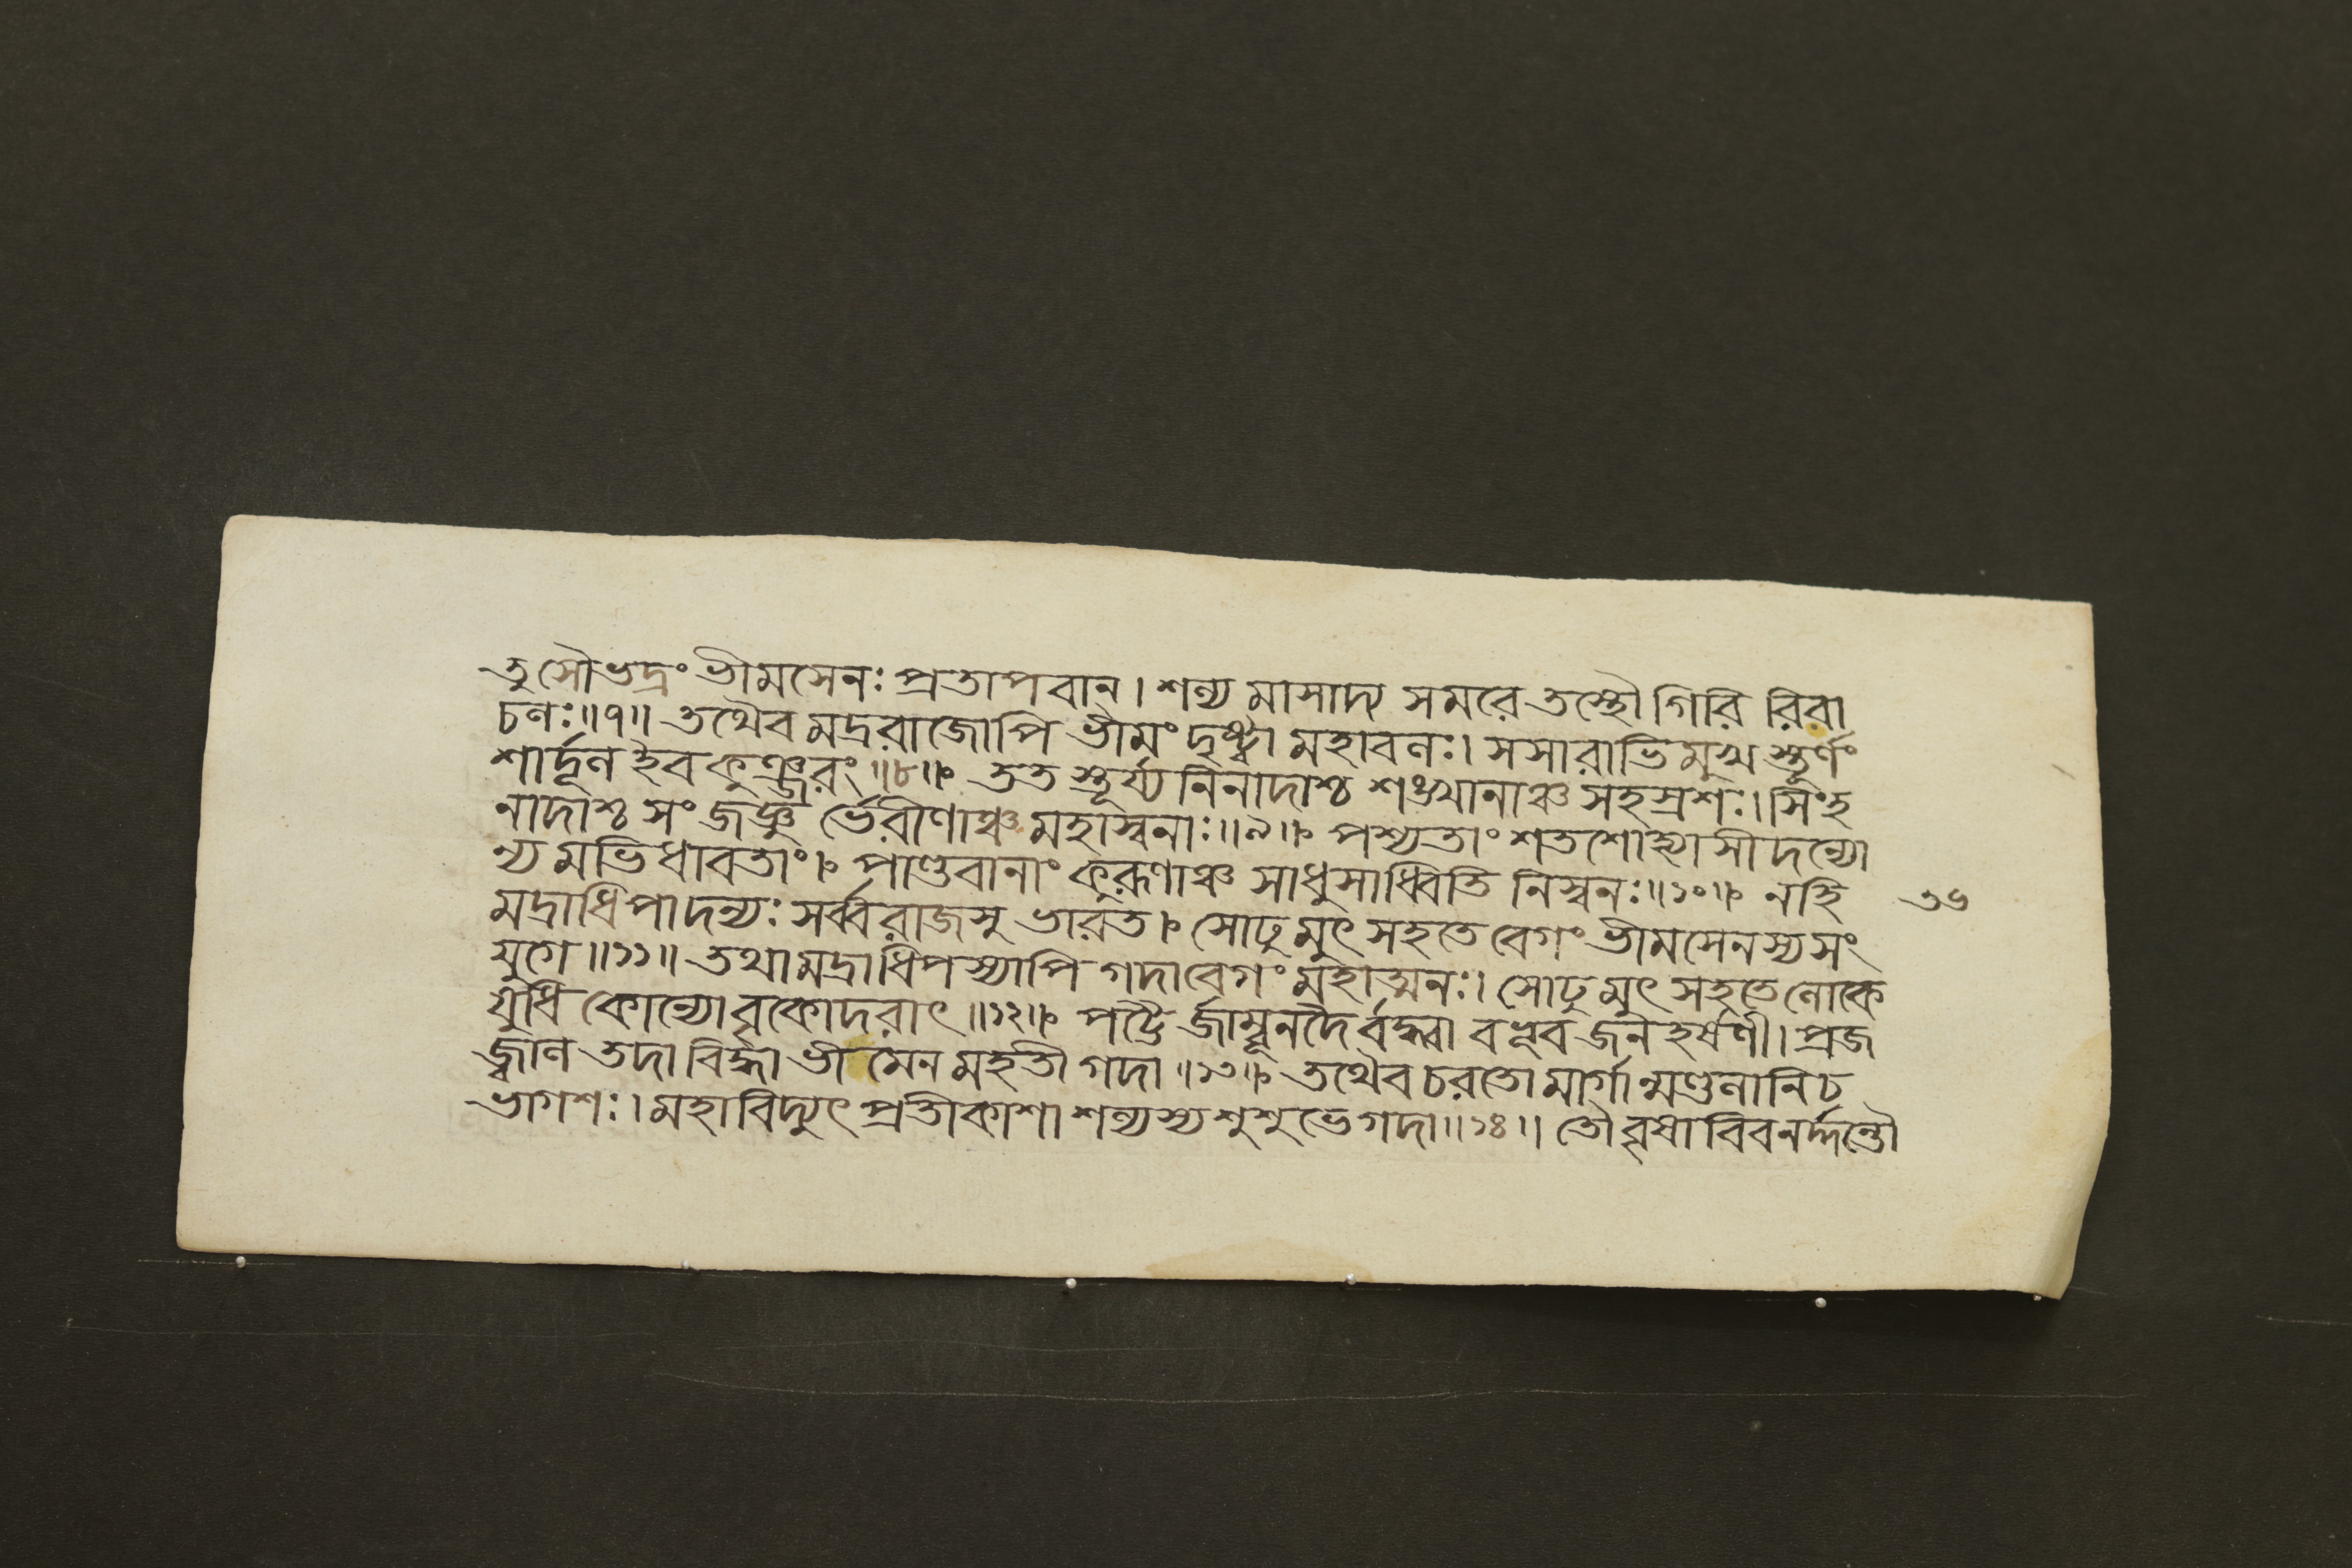 তু সৌভদ্রং ভীমসেনঃ প্রতাপবান্। শল্য মাসাদ্য সমরে তস্থৌ গিরি রিবা
চলঃ॥৭॥ তথৈব মদ্ররাজোপি ভীমং দৃষ্ট্বা মহাবলঃ। সসারাভিমুখ স্তূর্ণং
শার্দূল ইব কুঞ্জরং॥৮॥ তত স্তূর্য্য নিনাদাশ্চ শঙ্খানাঞ্চ সহস্রশঃ। সিংহ
নাদাশ্চ সংজজ্ঞু র্ভেরীণাঞ্চ মহাস্বনাঃ॥৯॥ পশ্যতাং শতশোহ্যাসীদন্যো
ন্য মভিধাবতাং। পাণ্ডবানাং কুরূণাঞ্চ সাধুসাধ্বিতি নিস্বনঃ॥১০॥ নহি
মদ্রাধিপাদন্যঃ সর্ব্বরাজসু ভারত। সোঢু মুৎসহতে বেগং ভীমসেনস্য সং
যুগে॥১১॥ তথা মদ্রাধিপস্যাপি গদাবেগং মহাত্মনঃ। সোঢু মুৎসহতে লোকে
যুধি কোন্যো বৃকোদরাৎ॥১২॥ পট্টৈ র্জাম্বূনদৈ র্বদ্ধা বভূব জনহর্ষণী। প্রজ
জ্বাল তদা বিদ্ধা ভীমেন মহতী গদা॥১৩॥ তথৈব চরতো মার্গান্মণ্ডলানি চ
ভাগশঃ। মহাবিদ্যুৎ প্রতীকাশা শল্যস্য শুশুভে গদা॥১৪॥ তৌ বৃষাবিব নর্দ্দন্তৌ
৩৬